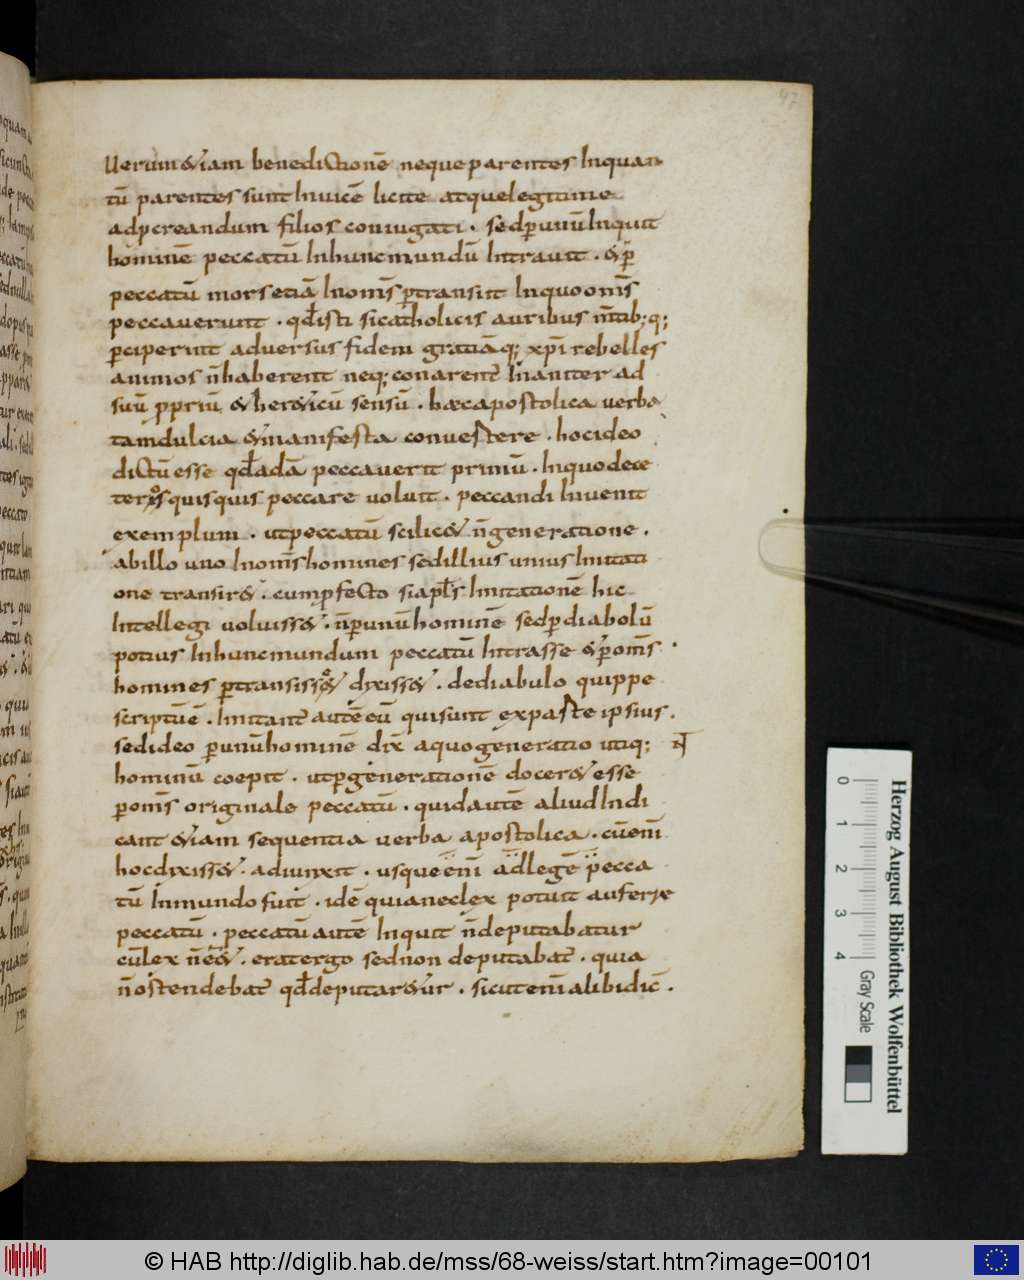 47
Uerum &iam benedictionē neque parentes Inquan
tū parentes sunt Inuicē licite atque legitime
ad pcreandum filios coniugati · sed p̱ unū Inquit
hominē peccatū In hunc mundū Intrauit · & p̱
peccatū mors etiā In om̄s p̱transiit In quo om̄s
peccauerunt · qđ isti si catholicis auribus m̄tib; q;
p̱ciperint aduersus fidem gratiāq; xp̄i rebelles
animos n̄ haberent neq; conarent̄ Inaniter ad
suū ꝓpriū & her&icū sensū · hæc apostolica uerba
tam dulcia & manifesta conuertere · hoc ideo
dictū esse qđ adā peccauerit primū · In quo de ce
teris quisquis peccare uoluit · peccandi Inuenit
exemplum · ut peccatū scilic& n̄ generatione ·
ab illo uno In om̄s homines sed illius unius Imitati
one transir& · cum p̱fecto si apl̄s Imitationē hic
Intellegi uoluiss& · n̄ p̱ unū hominē sed p̱ diabolū
potius In hunc mundum peccatū Intrasse & p̱ om̄s ·
homines p̱transisse dixiss& · de diabulo quippe
scriptū ē · Imitant̄ autē eū qui sunt ex parte ipsius ·
sed ideo p̱ unū hominē dix̄ a quo generatio utiq;
hominū coepit · ut p̱ generationē docer& esse
p̱ om̄s originale peccatū · quid autē aliud Indi
cant &iam sequentia uerba apostolica · cū enī
hoc dixiss& · adiunxit · usque enī ad legē pecca
tū In mundo fuit · id ē quia nec lex potuit auferre
peccatū · peccatū autē Inquit n̄ deputabatur
cū lex n̄ ee& · erat ergo sed non deputabat̄ · quia
n̄ ostendebat̄ qđ deputar&ur · sicut enī alibi dic̄ ·
Herzog August Bibliothek Wolfenbüttel
0 1 2 3 4
Gray Scale
© HAB http://diglib.hab.de/mss/68-weiss/start.htm?image=00101